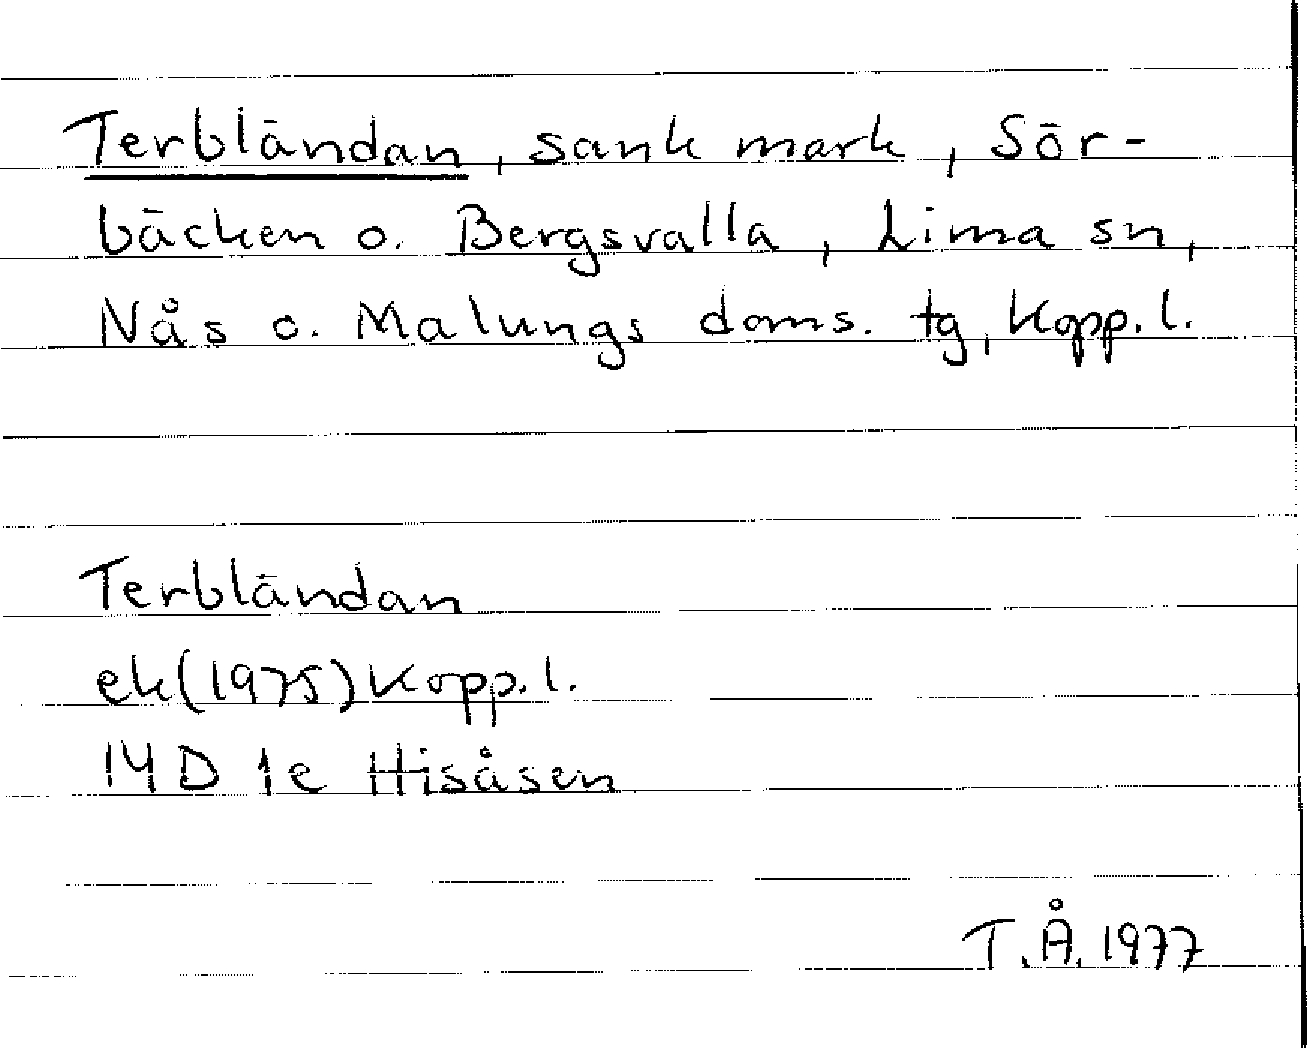 Terbländan, sank mark, Sör-
bäcken o. Bergsvalla, Lima sn,
Nås o. Malungs doms. tg, Kopp. l.
Terbländan
ek (1975) Kopp. l.
14 D 1e Hisåsen
T.Å. 1977